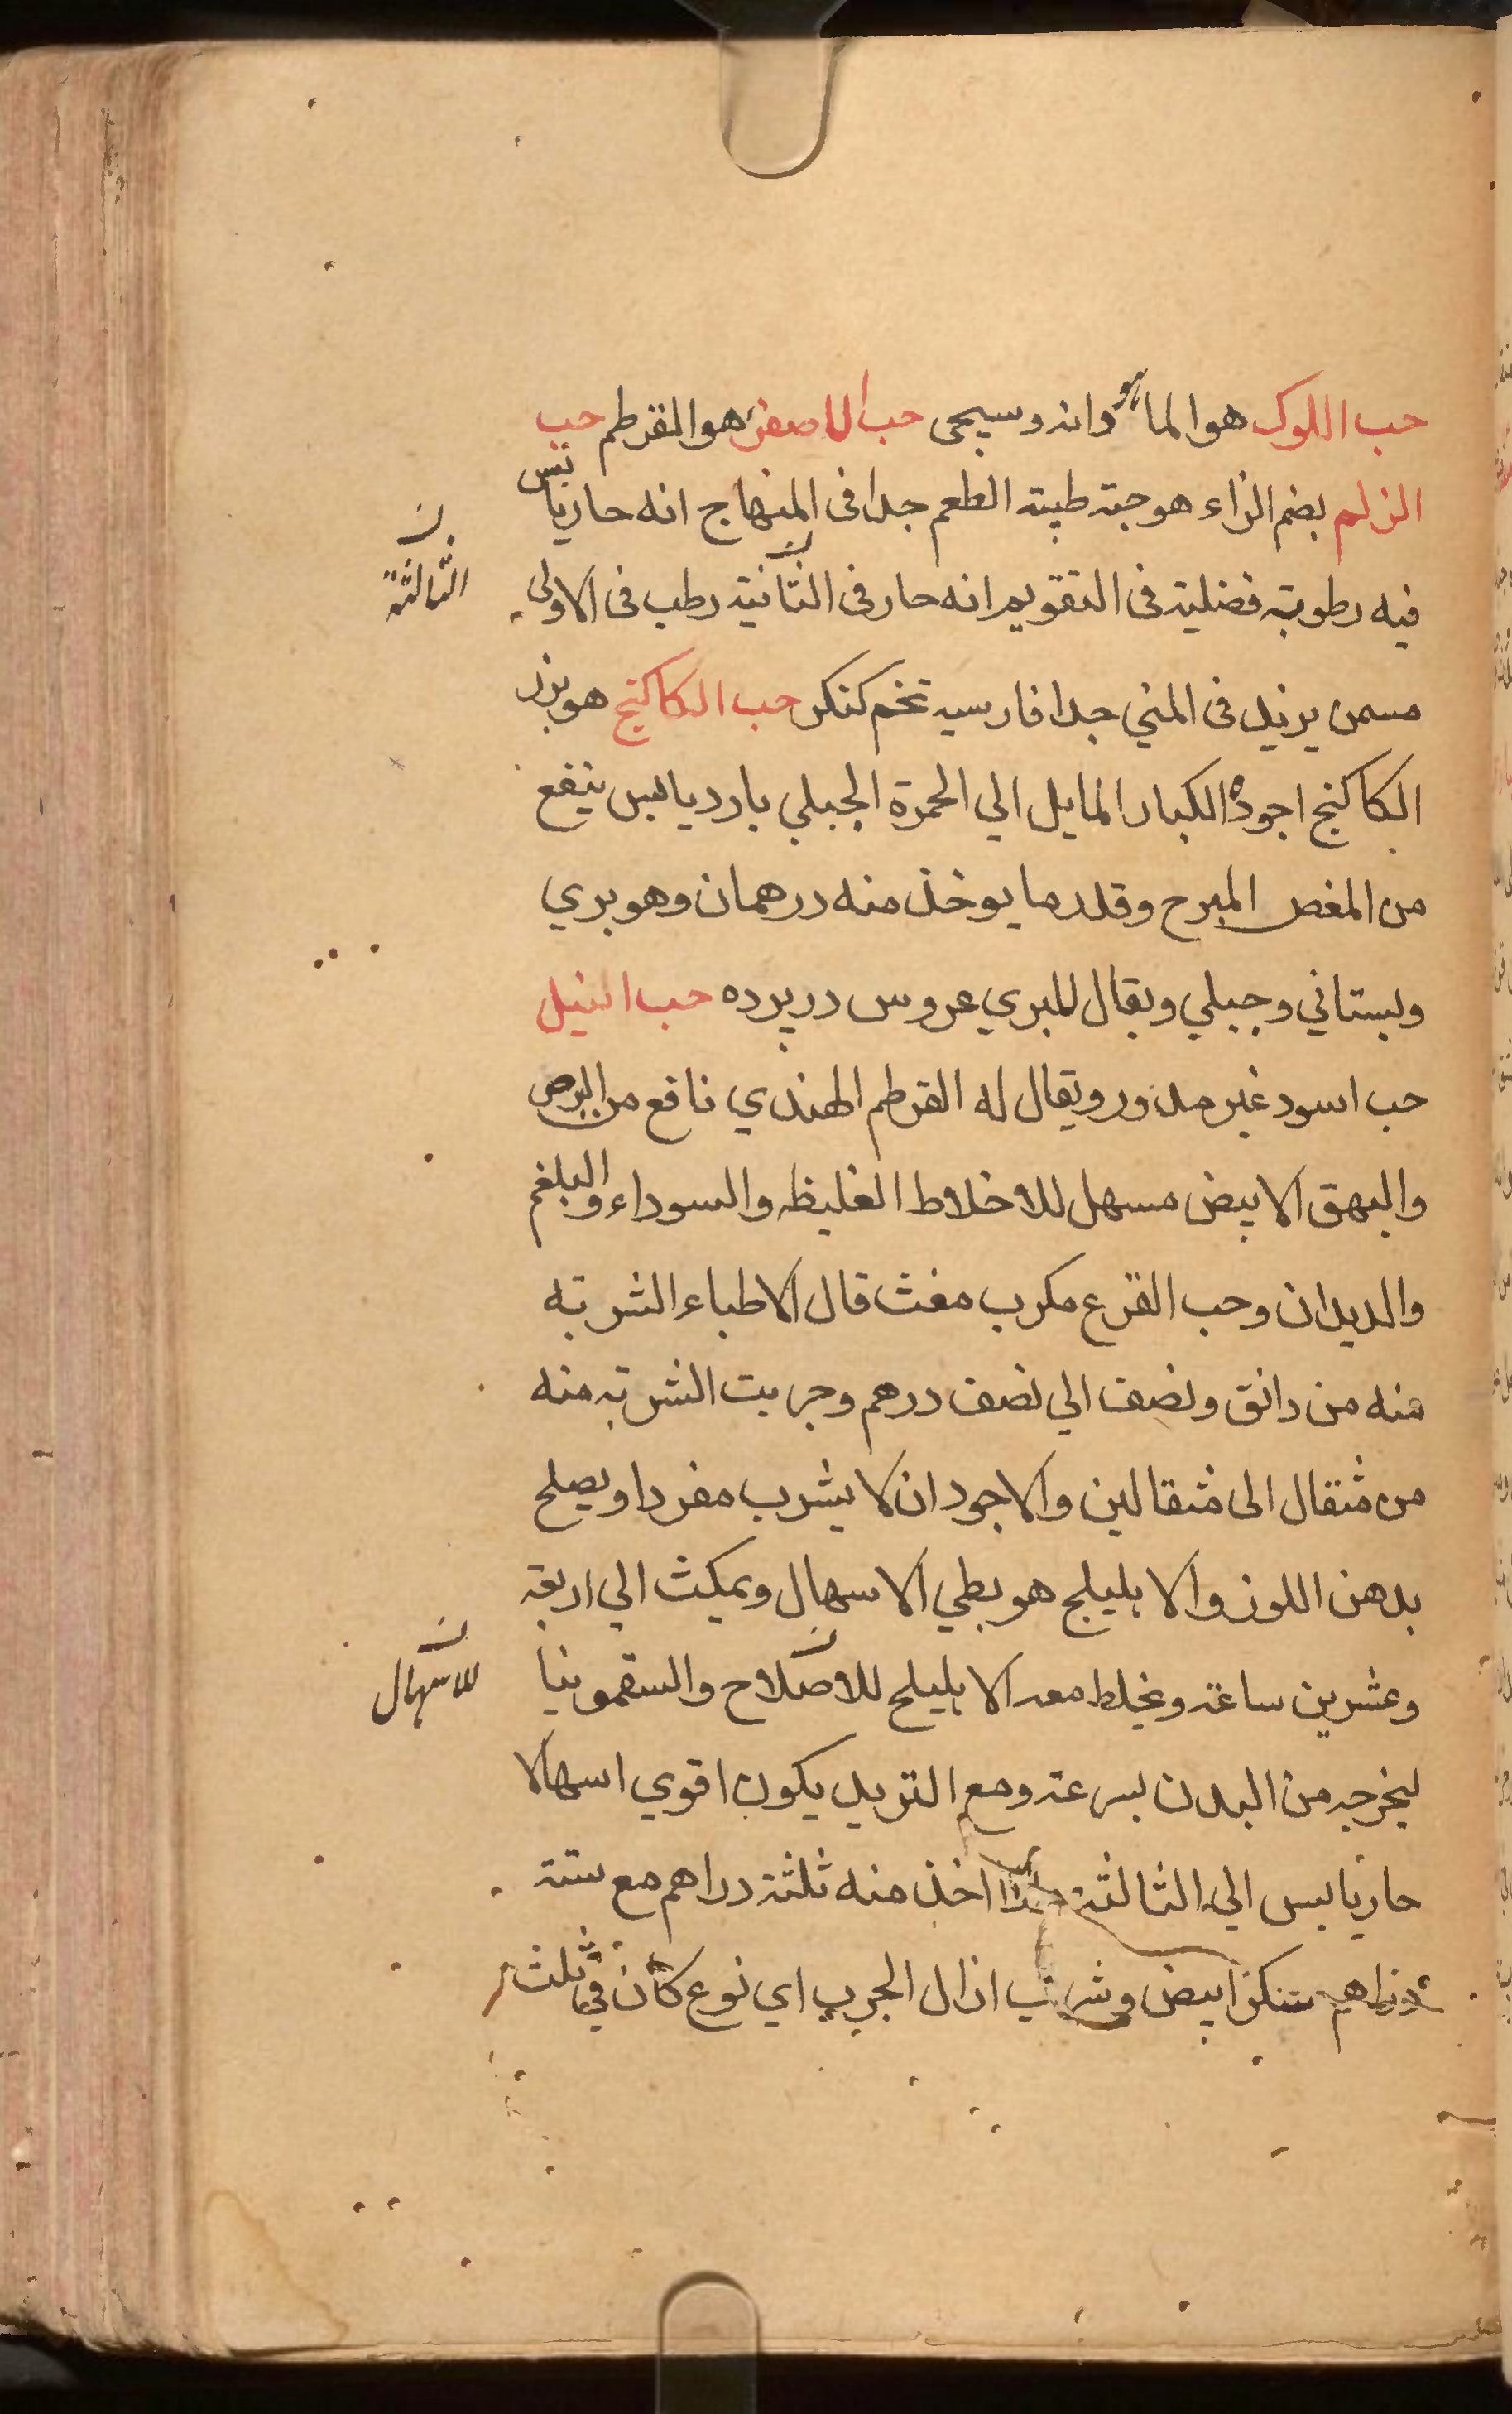 حب اللوك هو الماهو دانه وسيجى حب الاصفر هو القرطم حب
الزلم بضم الزاء هو حبة طيبة الطعم جدا فى المنهاج انه حار يابس
فيه رطوبة فضلية فى التقويم انه حار فى الثانية رطب فى الاولى
الثالثة
مسمن يزيد فى المني جدا فارسيه تخم كنكر حب الكاكنج هو بزر
الكاكنج اجوده الكبار المايل الي الحمرة الجبلي بارد يابس ينفع
من المغص المبرح وقدر ما يوخذ منه درهمان وهو بري
وبستاني وجبلي ويقال للبري عروس در پرده حب النيل
حب اسود غير مدور ويقال له القرطم الهندي نافع من البرص
والبهق الابيض مسهل للاخلاط الغليظه والسوداء والبلغم
والديدان وحب القرع مكرب مغث قال الاطباء الشربة
منه من دانق ونصف الي نصف درهم وجربت الشربة منه
من مثقال الى مثقالين والاجود ان لا يشرب مفردا ويصلح
بدهن اللوز والاهليلج هو بطي الاسهال ويمكث الي اربعة
وعشرين ساعة ويخلط معه الاهليلج للاصلاح والسقمونيا
للاسهال
ليخرجه من البدن بسرعة ومع التربد يكون اقوي اسهالا
حار يابس الي الثالثة اذا اخذ منه ثلثة دراهم مع ستة
دراهم سكر ابيض وشرب ازال الجرب اي نوع كان في ثلث